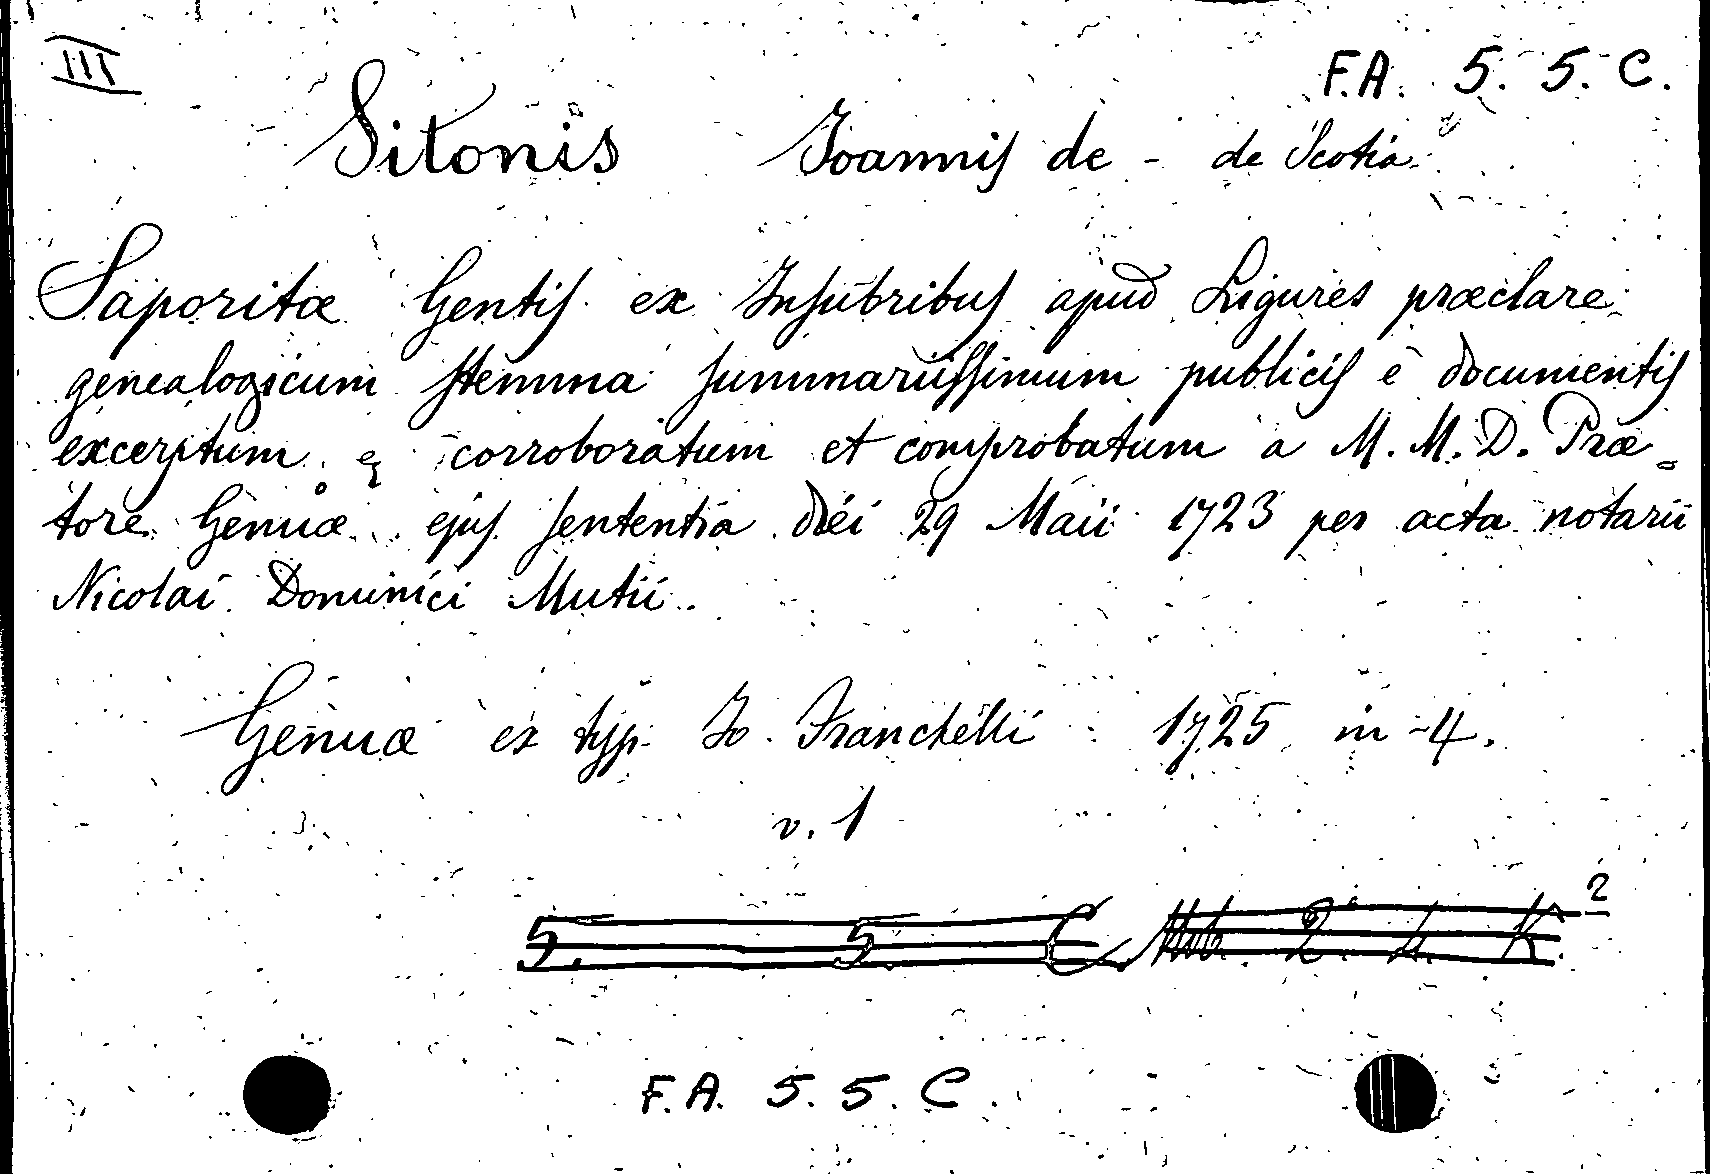 III
F.A. 5. 5. C.
Sitonis Joannis de - de Scotia
Saporitæ Gentis ex Insubribus apud Ligures præclare
genealogicum stemma summariissimum publicis e documentis
excerptum corroboratum et comprobatum a M. M. D. Præ=
tore Genuæ ejus sententia diei 29 Maii 1723 per acta notarii
Nicolai Dominici Mutii.
Genuæ ex typ. Jo. Franchelli 1725 in-4.
v. 1
5. 5. C 2. 4. K. 2
F.A. 5. 5. C.